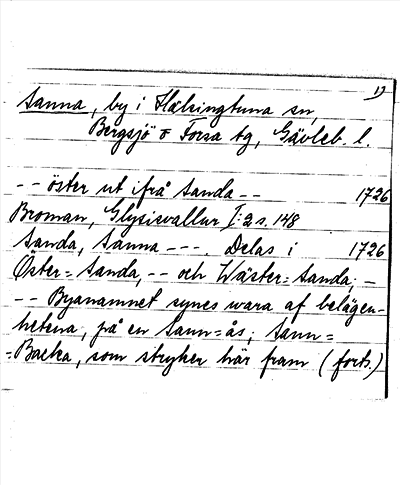 19
Sanna, by i Hälsingtuna sn,
Bergsjö o Forsa tg, Gävleb. l.
-- öster ut ifrå Sanda -- 1726
Broman, Glysisvallur I:2 s. 148
Sanda, Sanna --- Delas i 1726
Öster=Sanda, -- och Wäster=Sanda; -
-- Byanamnet synes wara af belägen-
hetena, på en Sann=ås, Sann=
=Backa, som stryker här fram (forts.)